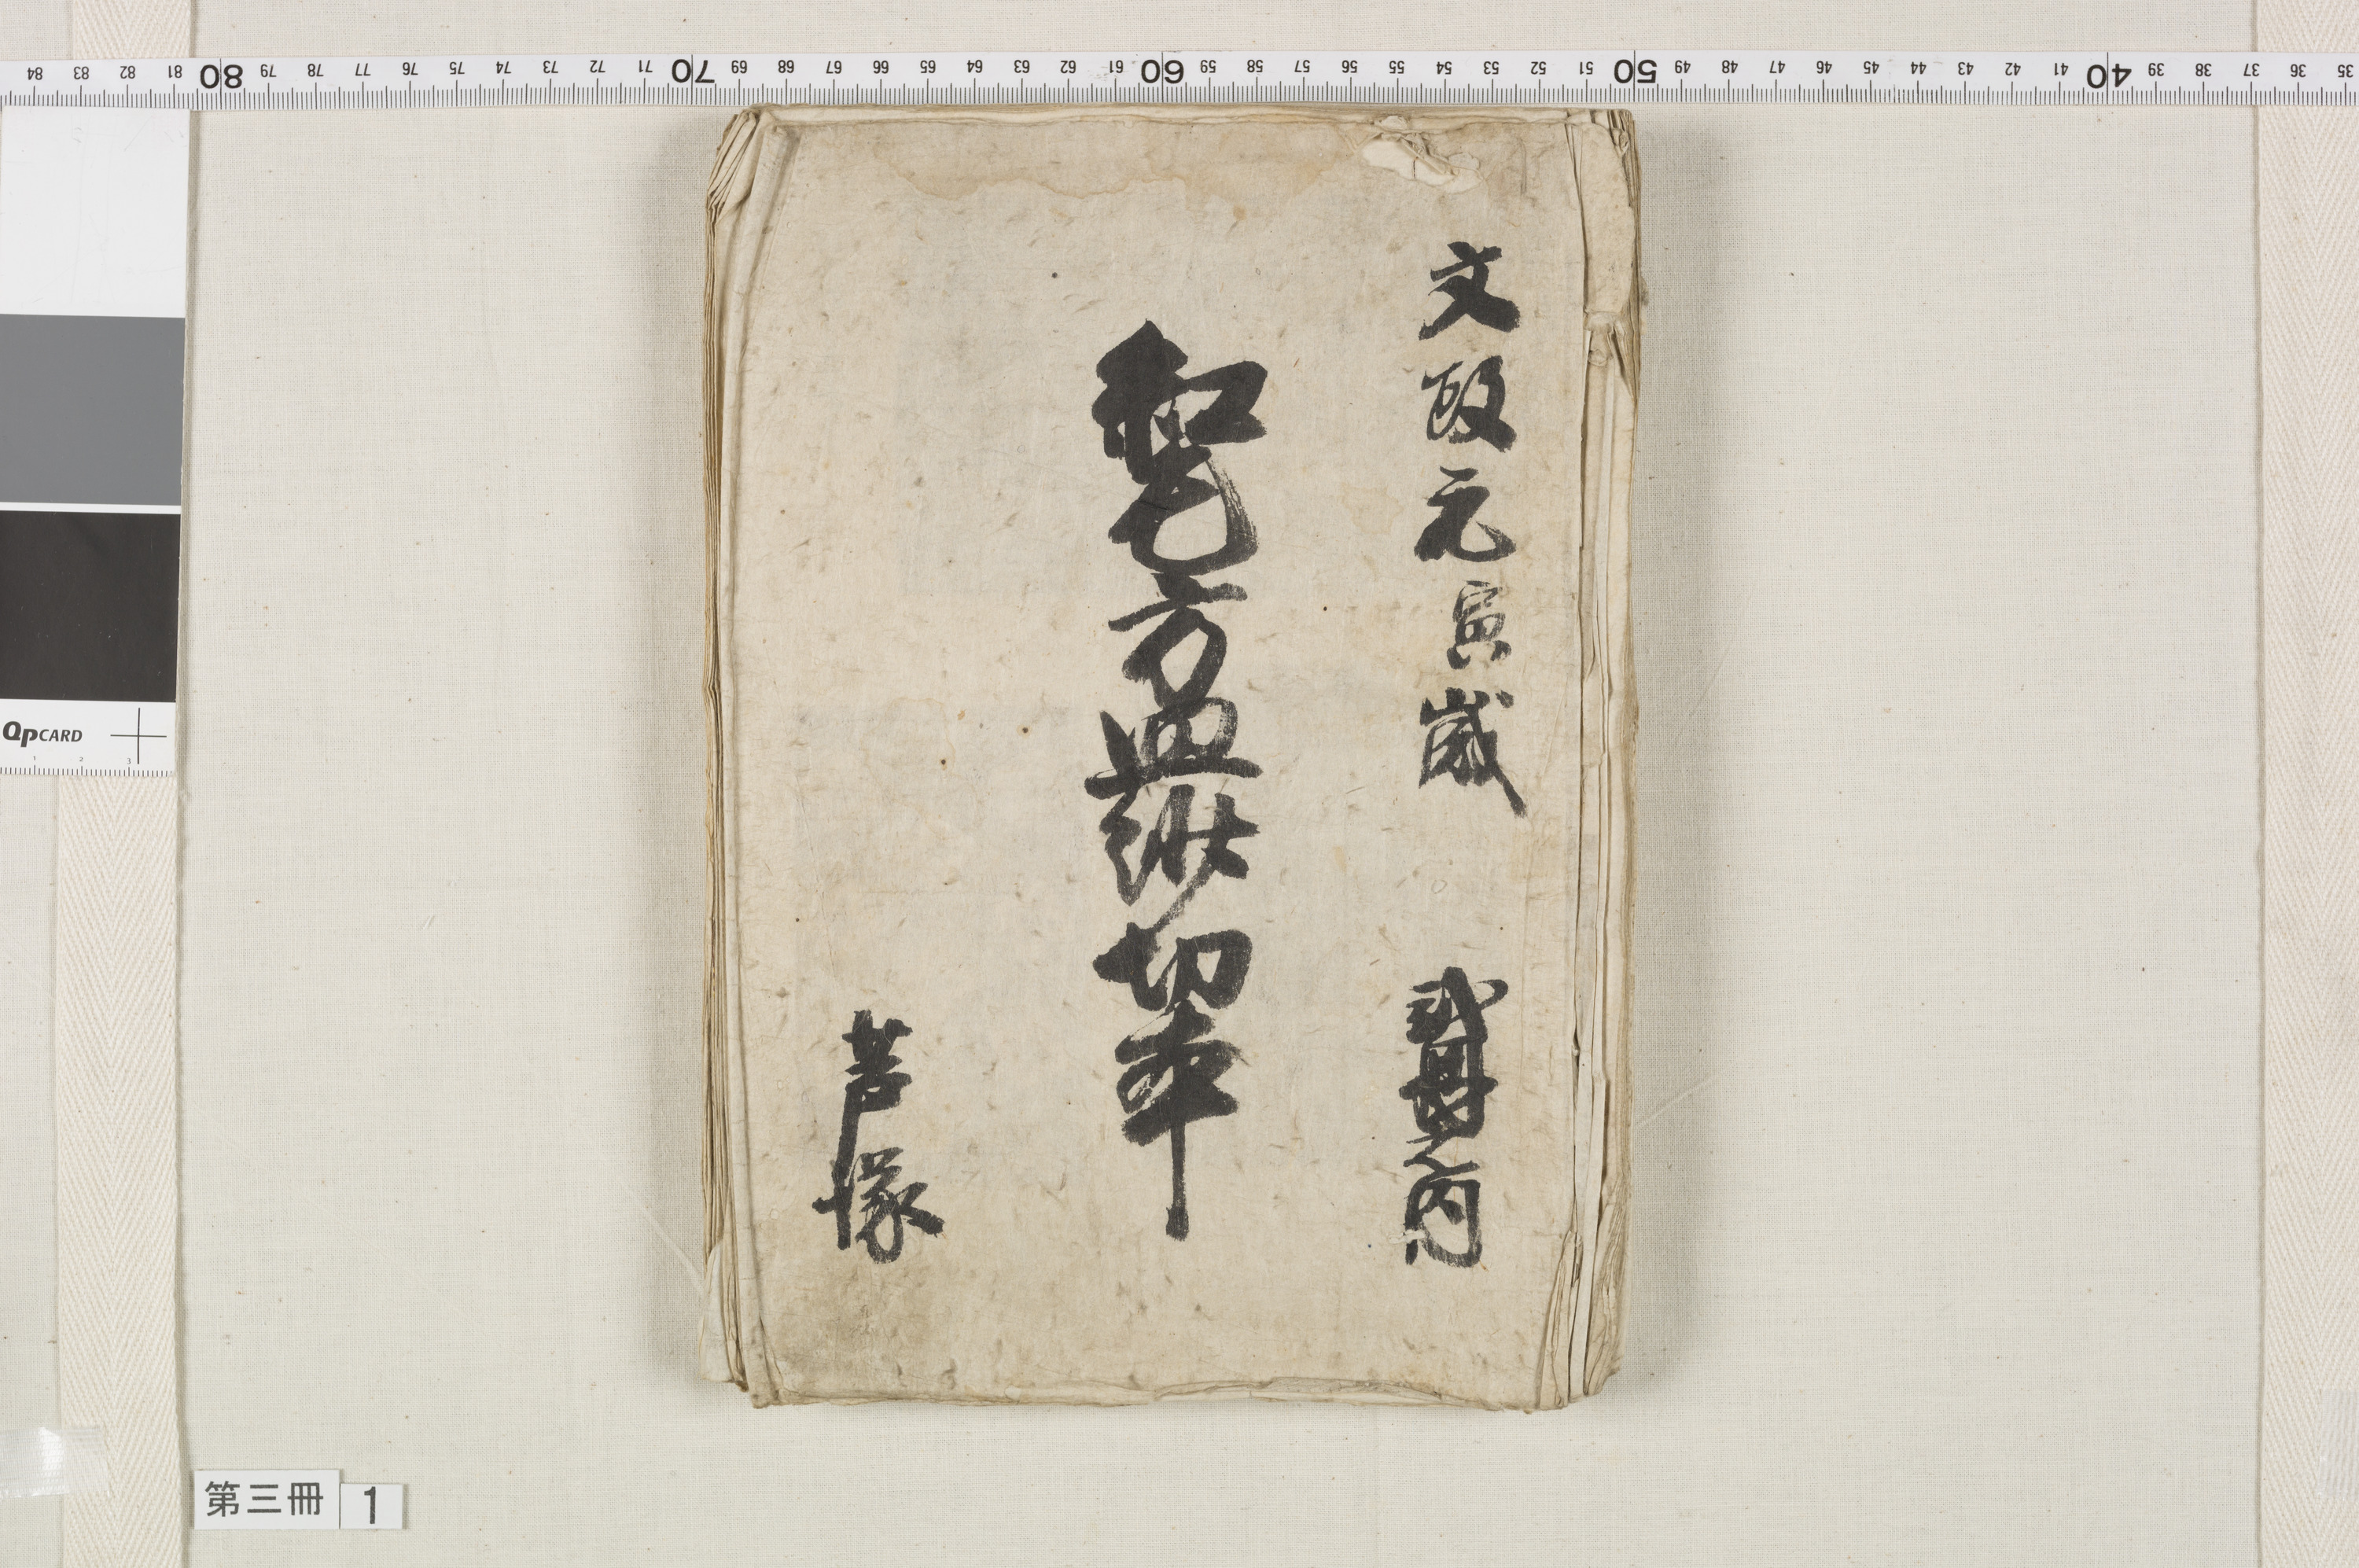 35 36 37 38 39 40 41 42 43 44 45 46 47 48 49 50 51 52 53 54 55 56 57 58 59 60 61 62 63 64 65 66 67 68 69 70 71 72 73 74 75 76 77 78 79 80 81 82 83 84
文政元寅歳
貳冊之内
方
切本
芦塚
QPCARD
1 2 3
第三冊 1